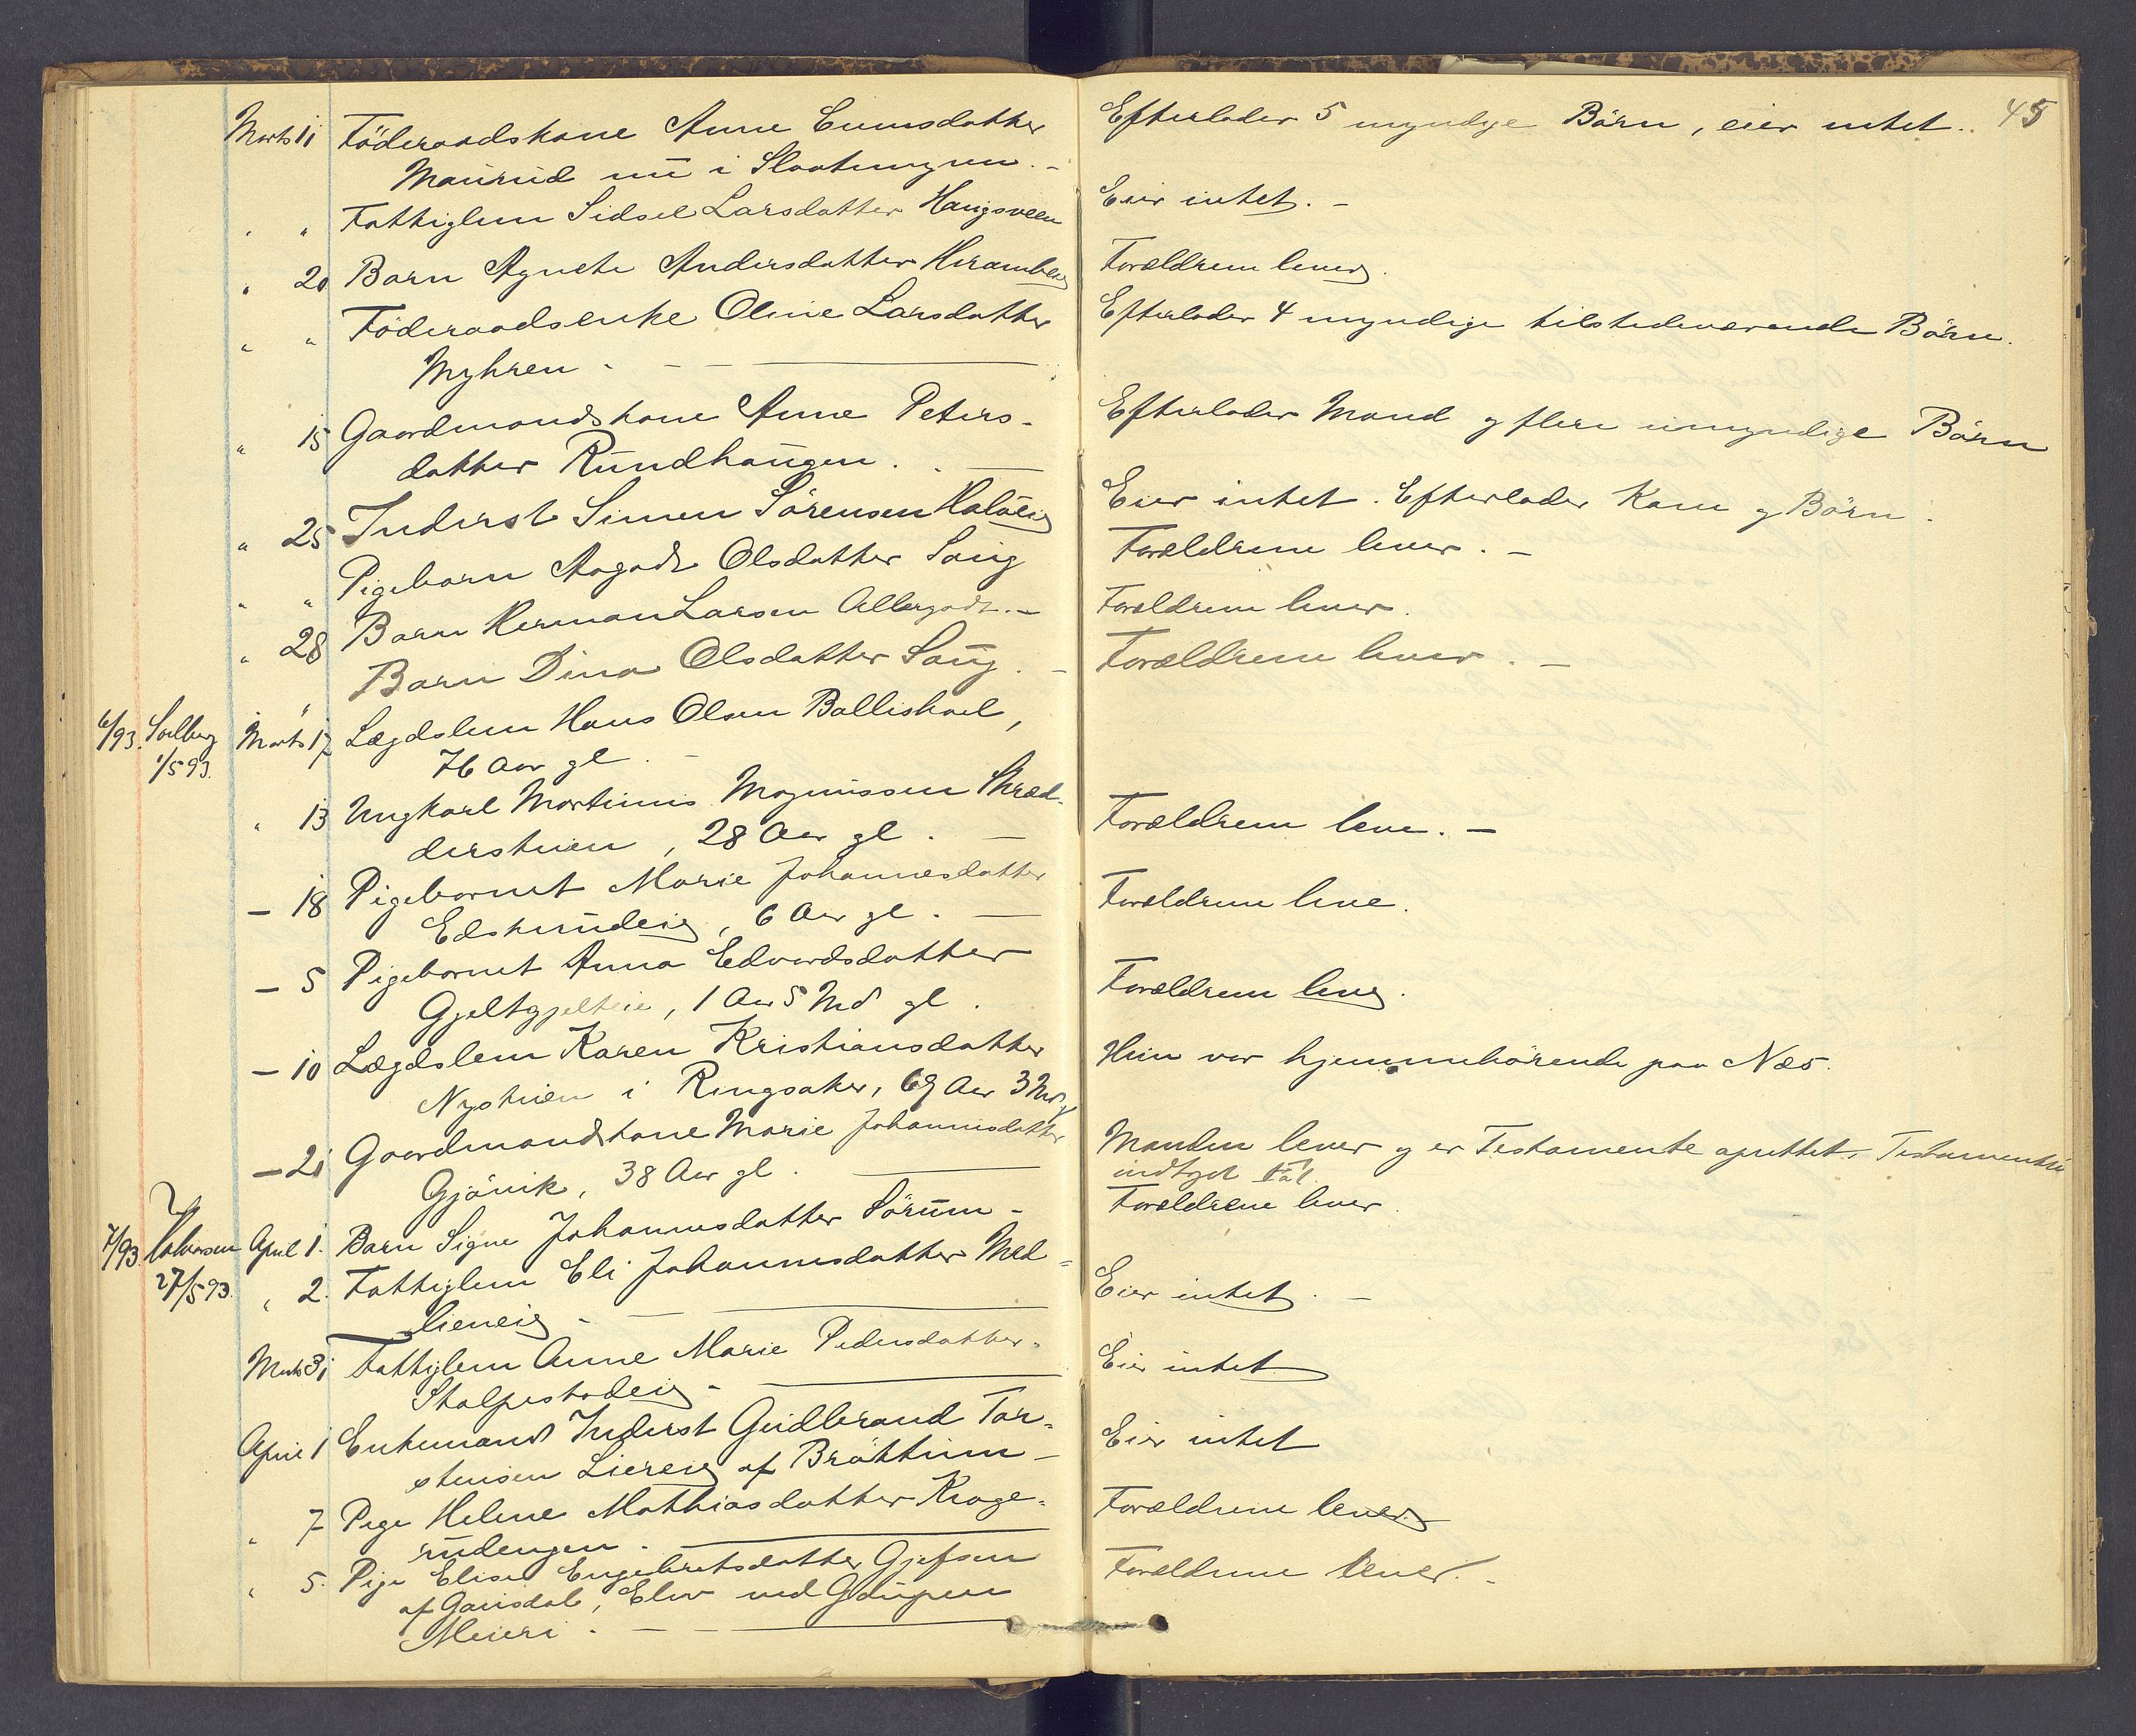 45
Marts 11 Föderaadskone Anne Evensdatter Efterlader 5 myndige Börn, eier intet.
Maurud nu i Slaatmyren. -
" " Fattiglem Sidsel Larsdatter Haugsveen Eier intet. -
" 20 Barn Agnete Andersdatter Forældrene lever.
" " Föderaadsenke Oline Larsdatter Efterlader 4 myndige tilstedeværende Börn.
Myhren. - - -
" 15 Gaardmandskone Anne Peters- Efterlader Mand og flere umyndige Börn
datter Rundhaugen. -
" 25 Inderst Simen Sörensen Eier intet. Efterlader Kone og Börn.
" " Pigebarn Aagot Olsdatter Saug Forældrene lever. -
" 28 Barn Herman Larsen - Forældrene lever.
" Barn Dina Olsdatter Saug. - Forældrene lever. -
6/93. Solberg Marts 17 Lægdslem Hans Olsen Ballishoel,
1/5 93. 76 Aar gl. -
" 13 Ungkarl Martinus Magnussen Skræd- Forældrene leve. -
derstuen, 28 Aar gl. -
- 18 Pigebarnet Marie Johannesdatter Forældrene leve.
, 6 Aar gl. -
- 5 Pigebarnet Anna Edvardsdatter Forældrene lever.
, 1 Aar 5 Md gl.
- 10 Lægdslem Karen Kristiansdatter Hun var hjemmehörende paa Næs.
Nystuen i Ringsaker, 69 Aar 3 Md gl
- 21 Gaardmandskone Marie Johannesdatter Manden lever og er Testamente oprettet. Testamentet
Gjövik, 38 Aar gl. - indtaget
7/93. Halvorsen April 1. Barn Signe Johannesdatter Sörum - Forældrene lever.
27/5 93. " 2. Fattiglem Eli Johannesdatter Mæh= Eier intet. -
lieneie -
Marts 31 Fattiglem Anne Marie Pedersdatter Eier intet
Skolpestadeie -
April 1 Enkemand Inderst Gudbrand Tor= Eier intet
stensen Liereie af Bröttum -
" 7 Pige Helene Mathiasdatter Krage= Forældrene lever.
rudengen. -
" 5. Pige Elise Engebretsdatter Gjefsen Forældrene lever. -
af Gausdal, Elev ved
Meieri. - -